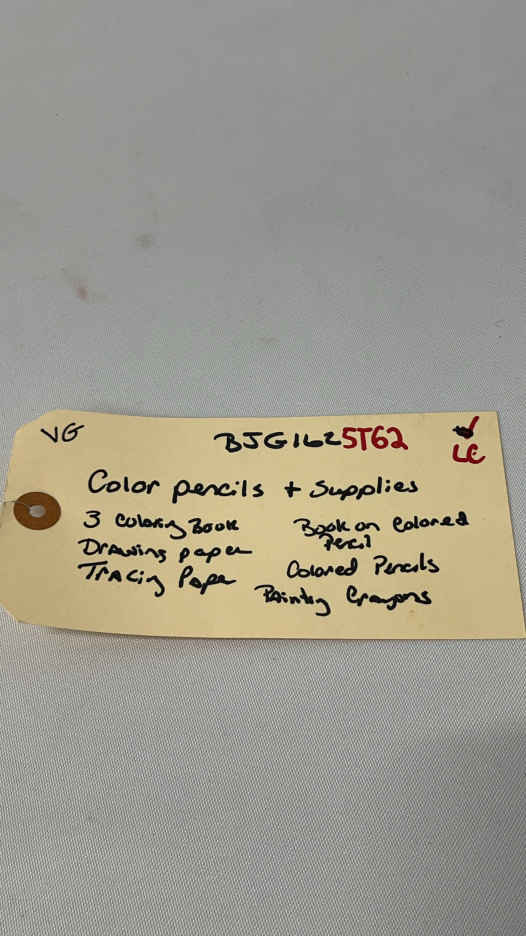 VG BJG162 5T62
LE
Color pencils + Supplies
3 Coloring Book
Drawing paper
Tracing Paper
Book on Colored
Pencil
Colored Pencils
Painting Crayons